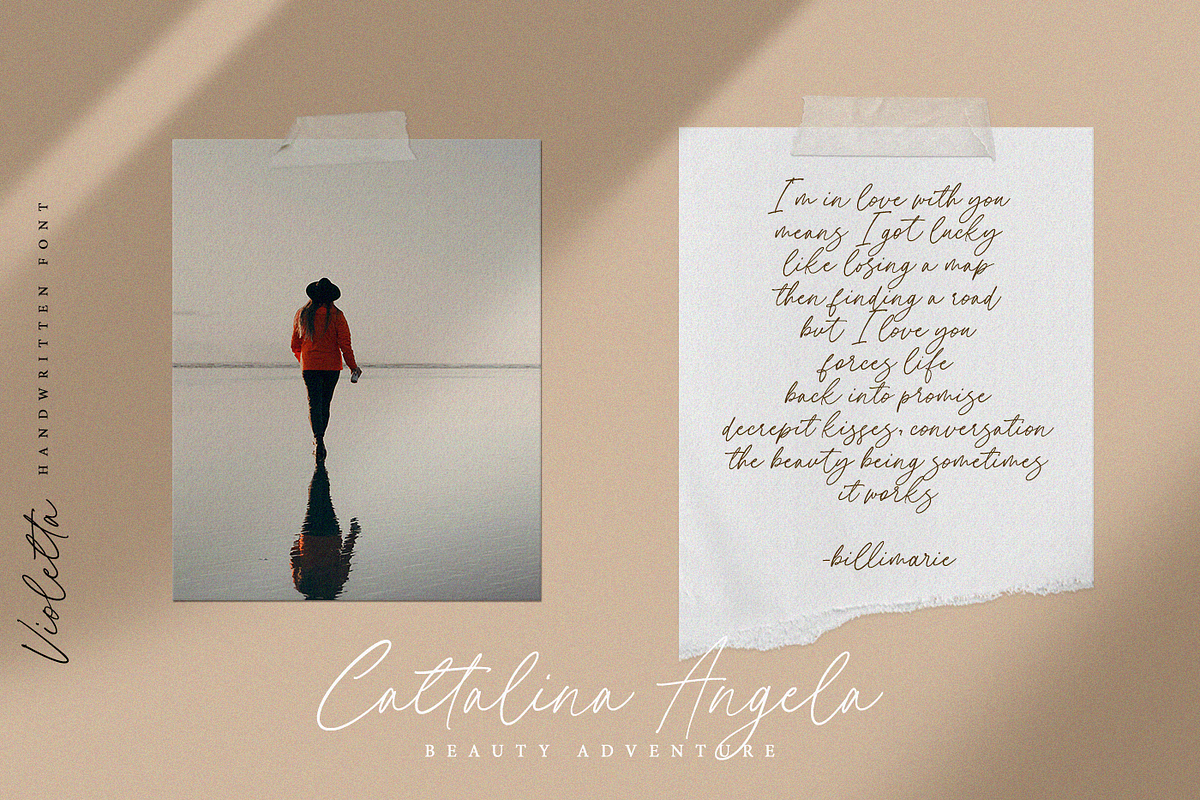 Violetta HANDWRITTEN FONT
I'm in love with you
means I got lucky
like losing a map
then finding a road
but I love you
forces life
back into promise
decrepit kisses, conversation
the beauty being sometimes
it works
-billimarie
Cattalina Angela
BEAUTY ADVENTURE